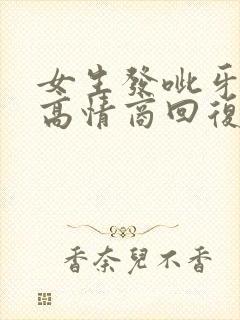 女生發呲牙
高情商回復
香奈兒不香